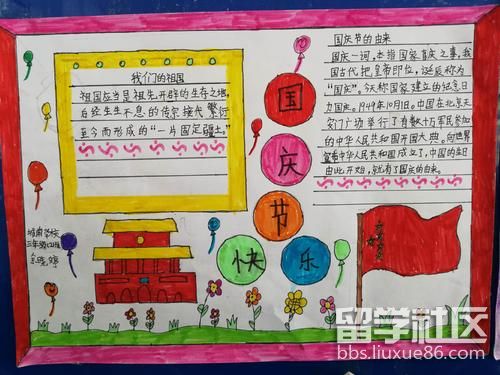 我们的祖国
祖国应当是祖先开辟的生存之地,
后经生生不息的传宗接代,繁衍
至今而形成的"一片固定疆土。"
国庆节快乐
国庆节的由来
国庆一词,本指国家喜庆之事,我
国古代把皇帝即位,诞辰称为
"国庆"。今天称国家建立的纪念日
为国庆。1949年10月1日,中国在北京天
安门广场举行了有数十万军民参加
的中华人民共和国开国大典。向世界
宣布中华人民共和国成立了,中国的生日
由此开始,就有了国庆的由来。
三年级
留学社区
bbs.liuxue86.com